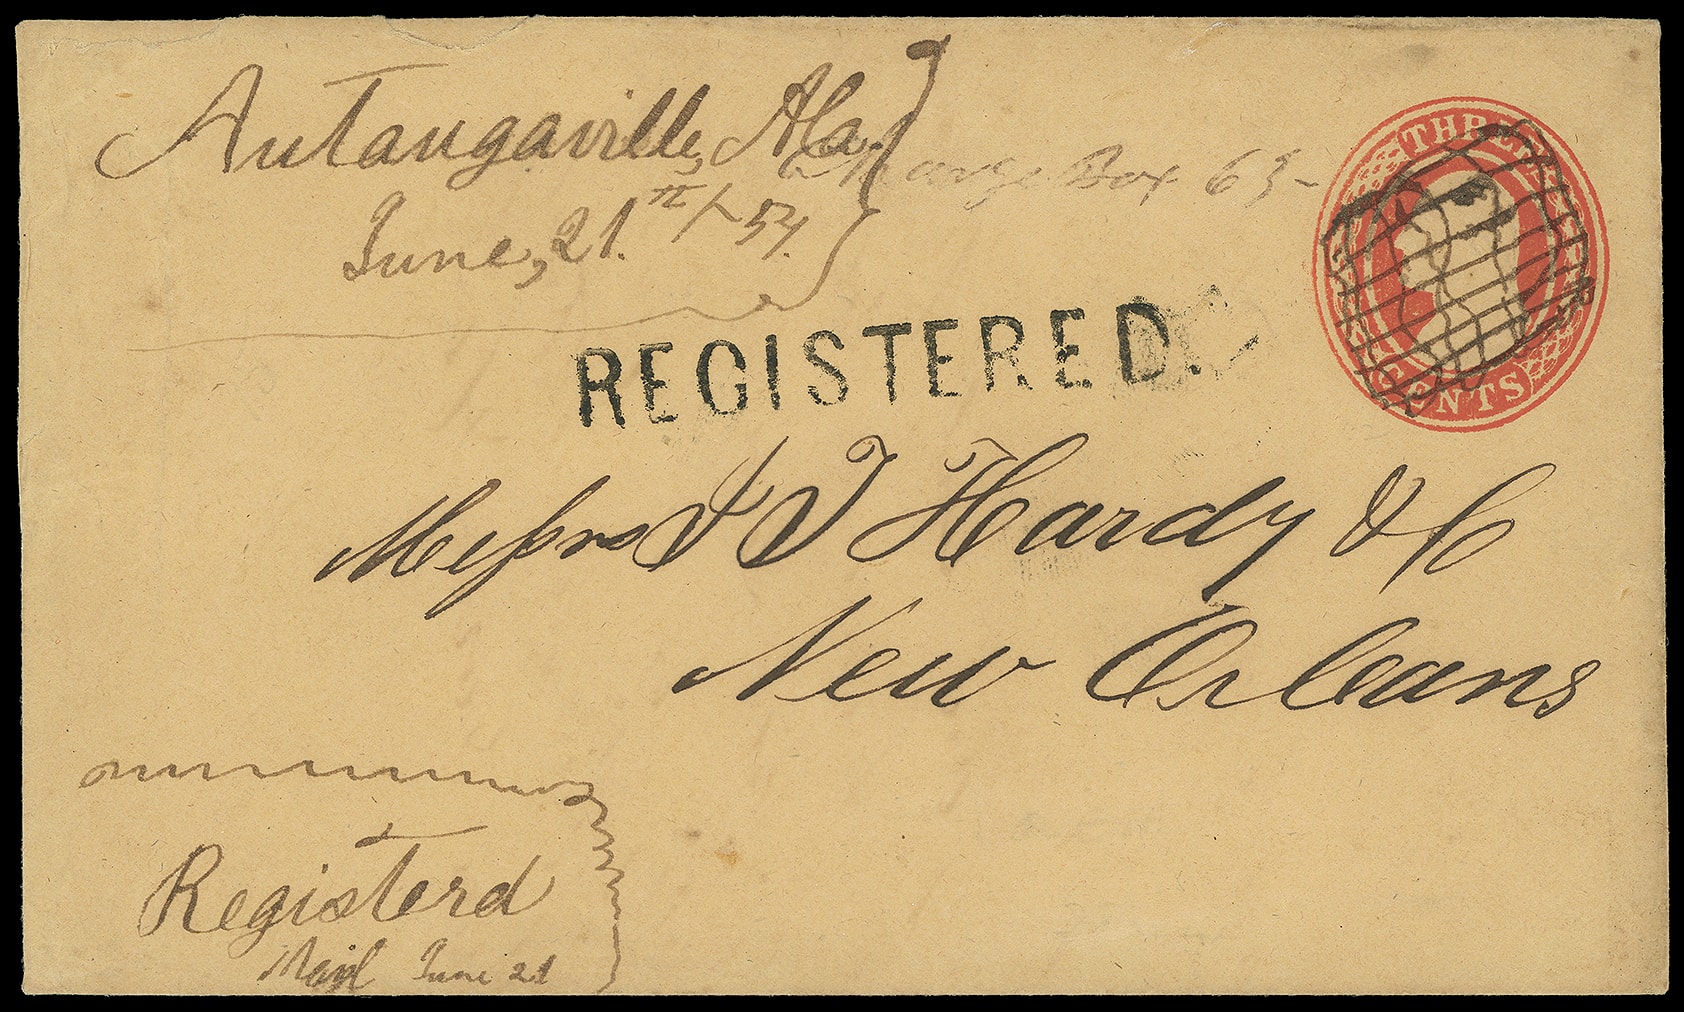 Autaugaville, Ala.
Charge Box 63-
June, 21.st/54.
THREE
CENTS
REGISTERED.
Messrs J J Hardy & C
New Orleans
Registerd
Mail June 21